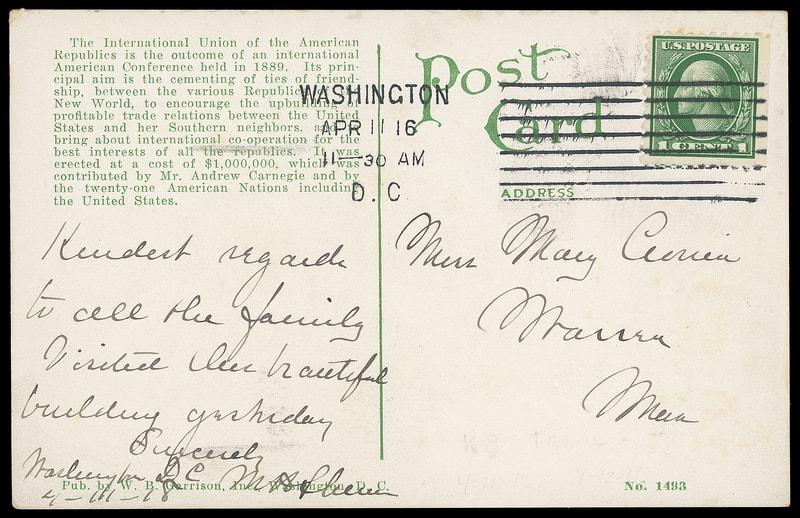 The International Union of the American
Republics is the outcome of an international
American Conference held in 1889. Its prin-
cipal aim is the cementing of ties of friend-
ship, between the various Republics
New World, to encourage the upbuilding of
profitable trade relations between the United
States and her Southern neighbors, and
bring about international co-operation for the
best interests of all the republics. It was
erected at a cost of $1,000,000, which was
contributed by Mr. Andrew Carnegie and by
the twenty-one American Nations including
the United States.
Post
Card
WASHINGTON
APR 11 16
11-30 AM
D. C.
U.S. POSTAGE
1 CENT 1
ADDRESS
Kindest regards
to all the family
Visited this beautiful
building yesterday
Sincerely
Washington DC
Miss Mary
Warren
Pub. by W. B. Garrison, Inc., Washington, D. C.
No. 1493